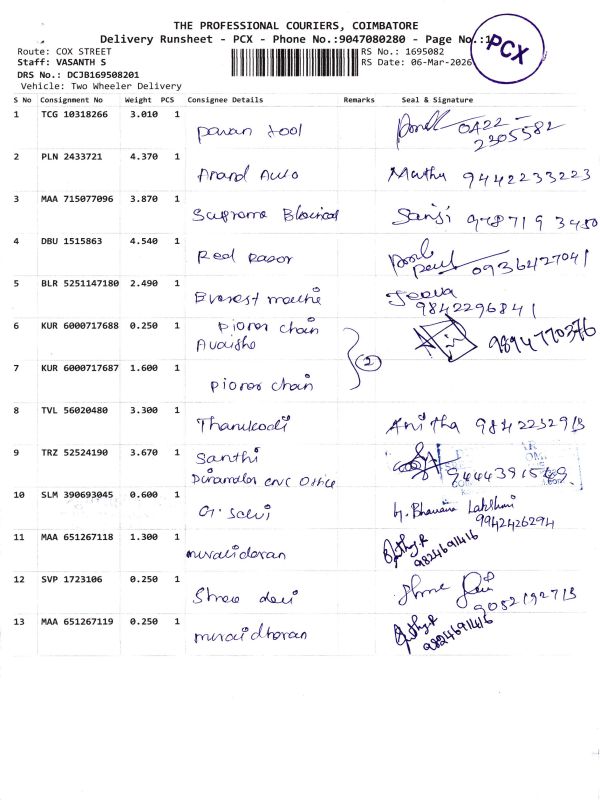 THE PROFESSIONAL COURIERS, COIMBATORE
Delivery Runsheet - PCX - Phone No.:9047080280 - Page No.:1
PCX
Route: COX STREET
RS No.: 1695082
Staff: VASANTH S
RS Date: 06-Mar-2026
DRS No.: DCJB169508201
Vehicle: Two Wheeler Delivery
S No Consignment No Weight PCS Consignee Details Remarks Seal & Signature
1 TCG 10318266 3.010 1 pavan tool 0422 - 2305582
2 PLN 2433721 4.370 1 Anand Auto Muthu 9442233223
3 MAA 715077096 3.870 1 Supreme Sanji
4 DBU 1515863 4.540 1 Red razor 0936427041
5 BLR 5251147180 2.490 1 Everest Jeeva
9842296841
6 KUR 6000717688 0.250 1 pioner chain
9894770376
7 KUR 6000717687 1.600 1 pioner chain
2
8 TVL 56020480 3.300 1 Thanikodi Anitha
9 TRZ 52524190 3.670 1 Santhi
Office
10 SLM 390693045 0.600 1 G. Selvi G. Bhavana Lakshmi
9942426294
11 MAA 651267118 1.300 1 muralidaran
9824691416
12 SVP 1723106 0.250 1 Shree devi Shree Devi
13 MAA 651267119 0.250 1 muralidharan
9824691416